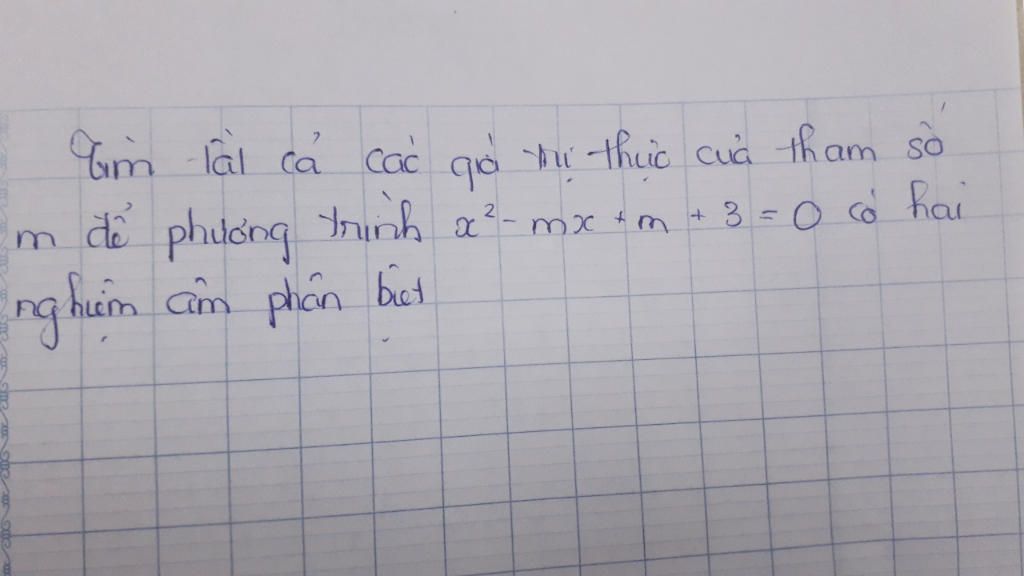 Tìm tất cả các giá trị thực của tham số
m để phương trình x² - mx + m + 3 = 0 có hai
nghiệm âm phân biệt